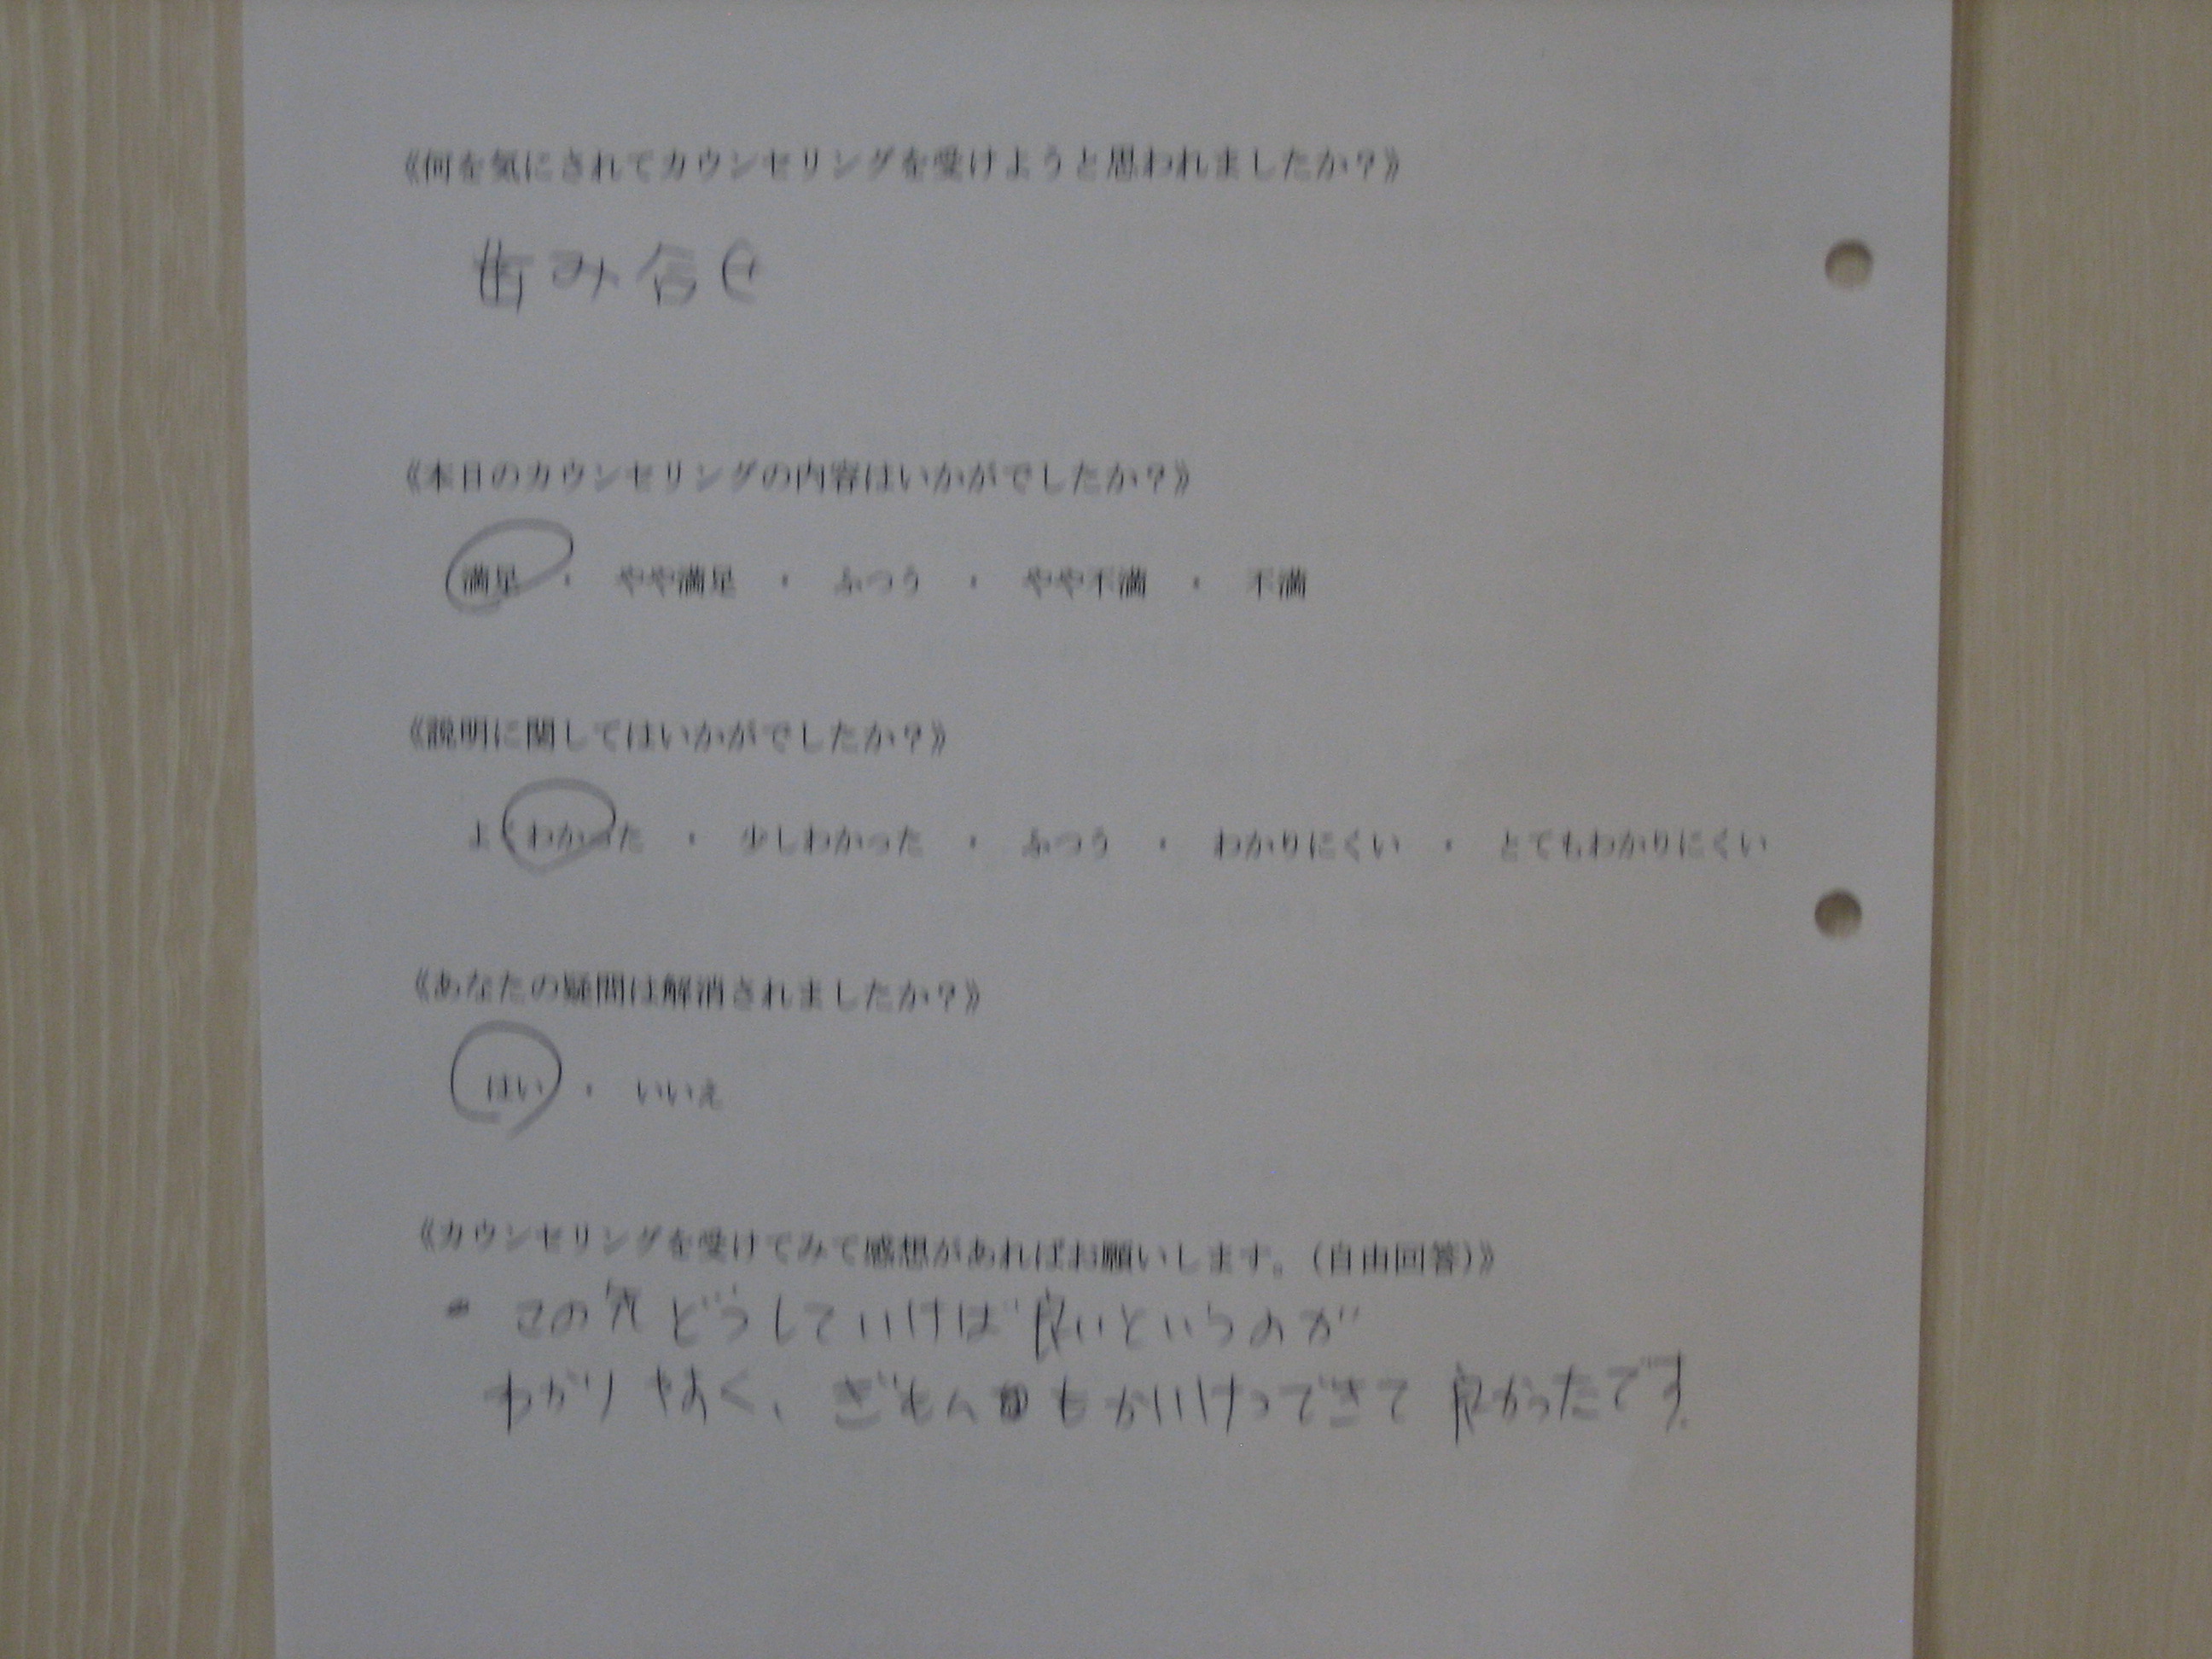 《何を気にされてカウンセリングを受けようと思われましたか？》
歯み合せ
《本日のカウンセリングの内容はいかがでしたか？》
満足 ・ やや満足 ・ ふつう ・ やや不満 ・ 不満
《説明に関してはいかがでしたか？》
よくわかった ・ 少しわかった ・ ふつう ・ わかりにくい ・ とてもわかりにくい
《あなたの疑問は解消されましたか？》
はい ・ いいえ
《カウンセリングを受けてみて感想があればお願いします。（自由回答）》
・この先どうしていけば良いというのが
わかりやすく、ぎもんもかいけつできて良かったです。